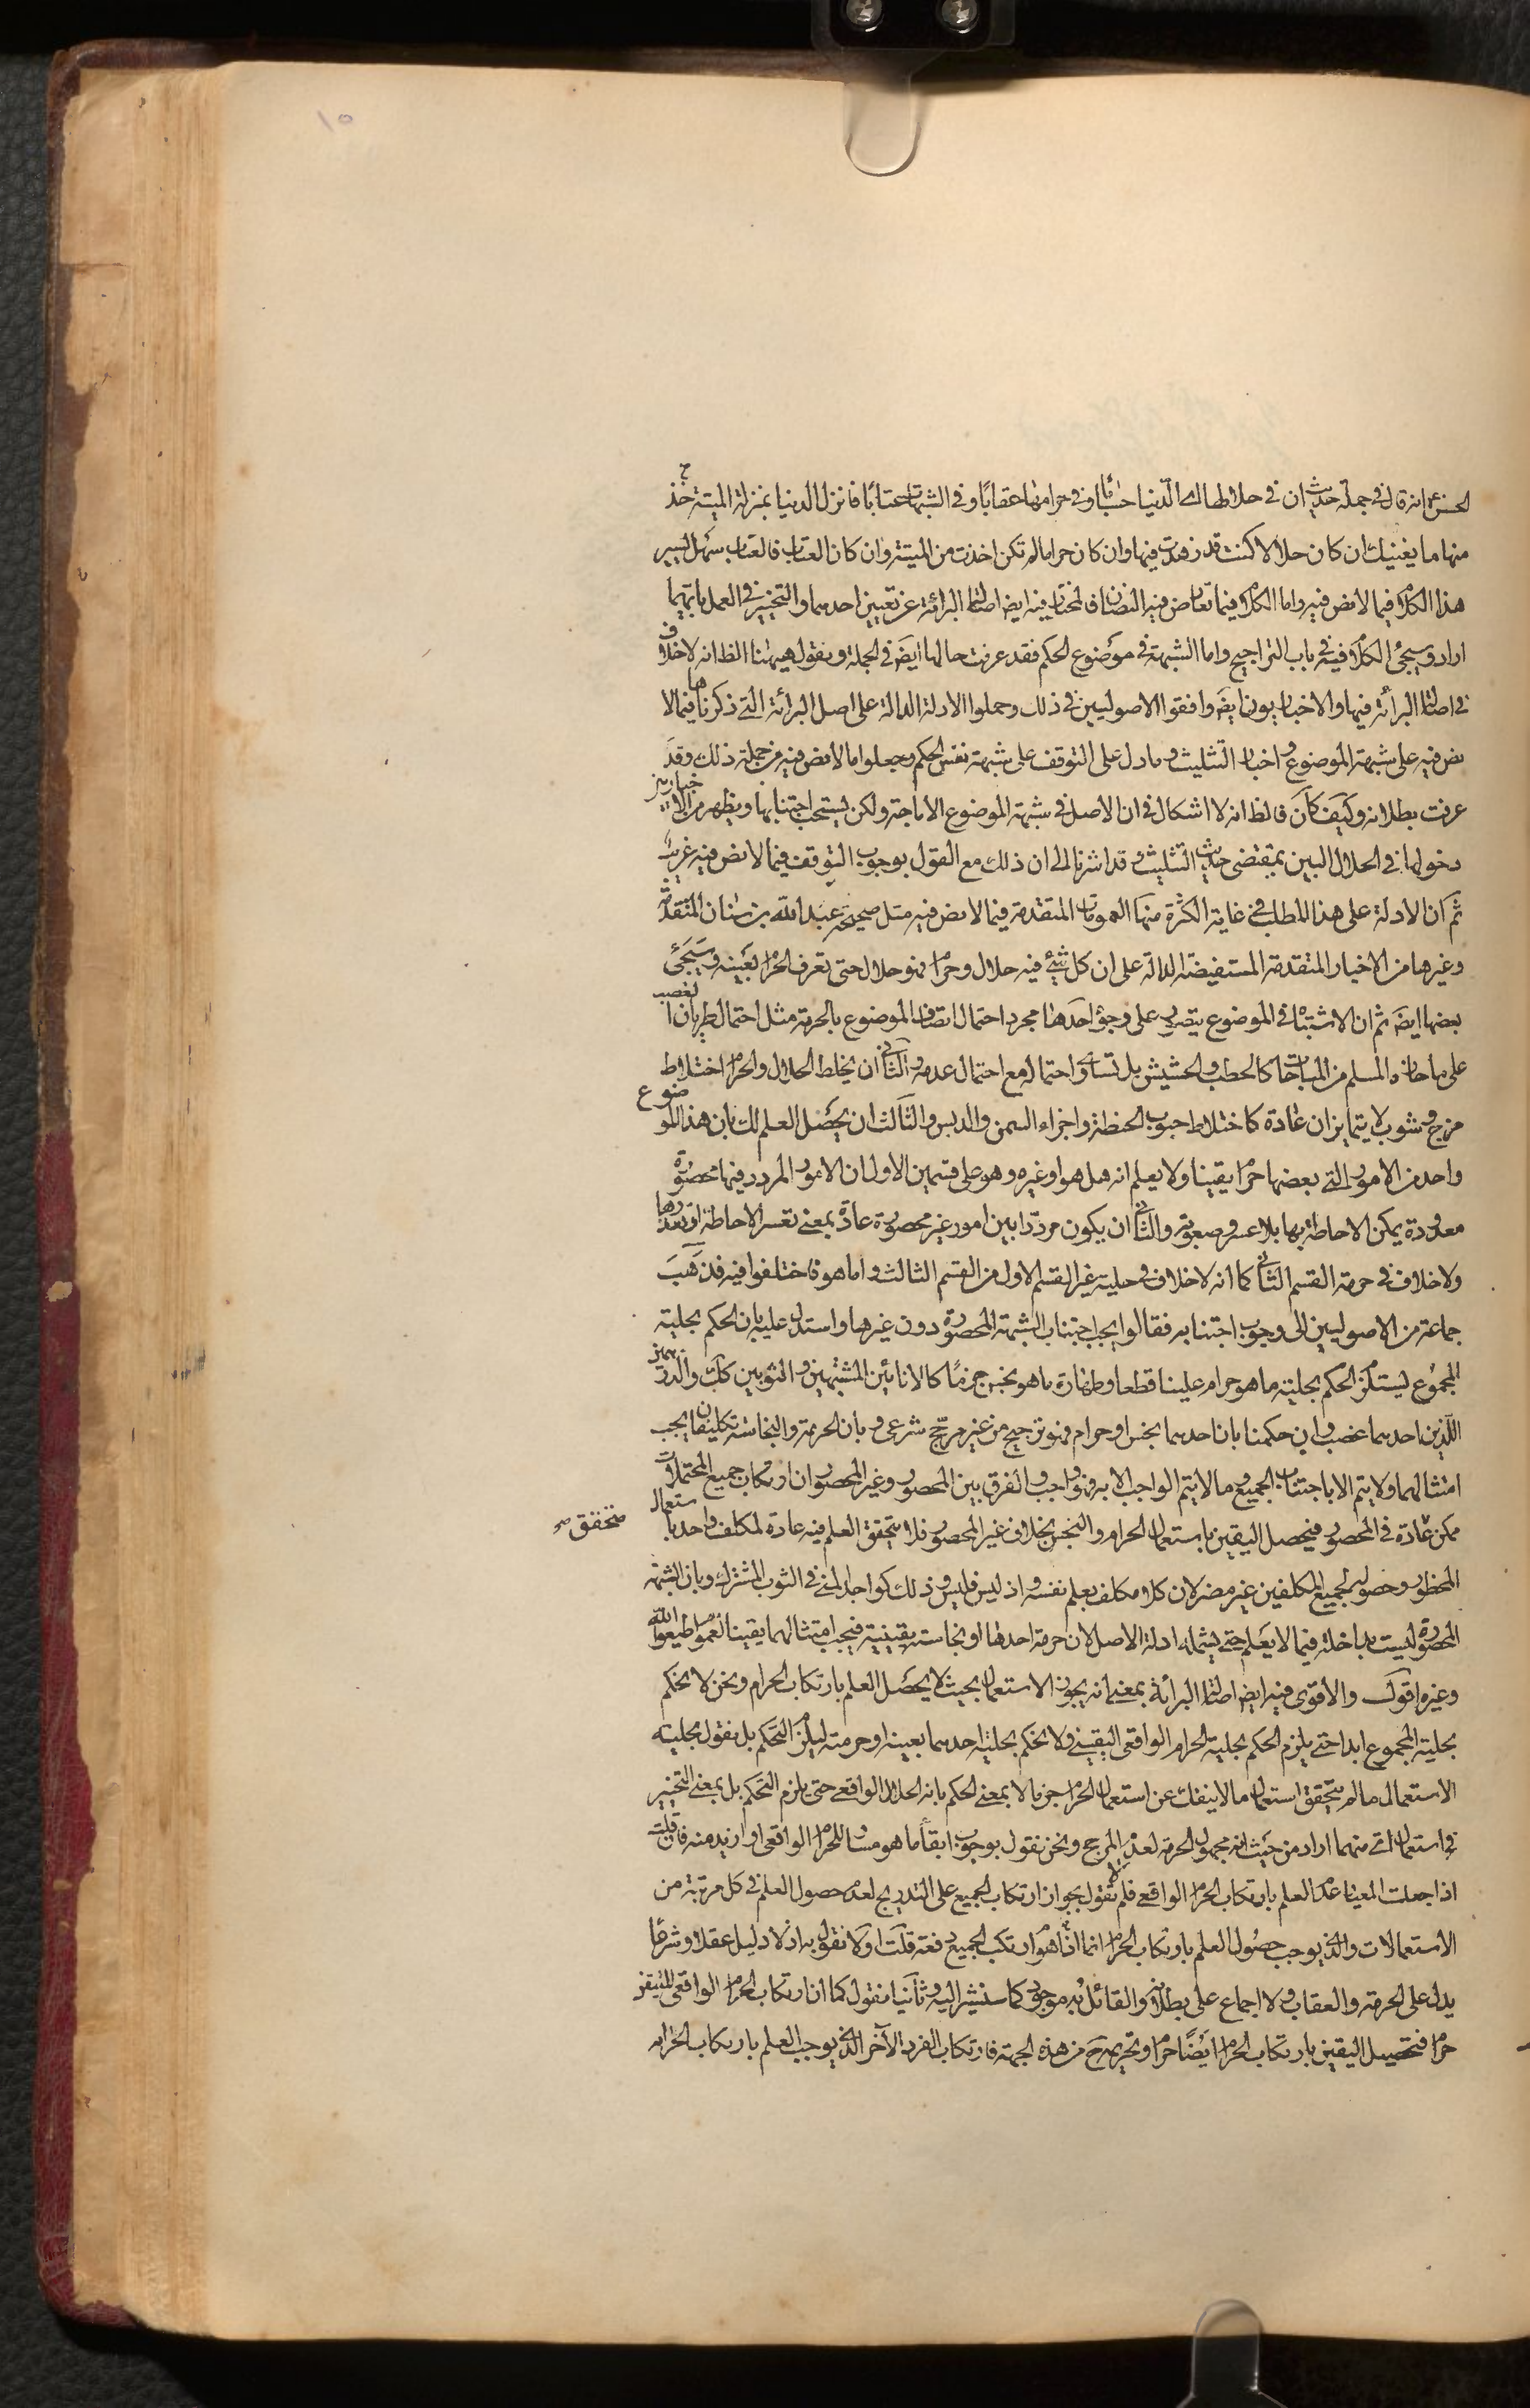 ١٥
الحسن ع انه قال في جملة حديث ان في حلالها اي الدنيا حسابا وفي حرامها عقابا وفي الشبهات عتابا فانزل الدنيا بمنزلة الميتة خذ
منها ما يغنيك ان كان حلالا كنت قد زهدت فيها وان كان حراما لم تكن اخذت من الميتة وان كان العتاب فالعتاب سهل يسير
هذا الكلام فيما لا نص فيه واما الكلام فيما تعارض فيه النصان فالمختار فيه ايضا اصالة البرائة عن تعيين احدهما والتخيير في العمل بايهما
اراد وسيجئ الكلام فيه في باب التراجيح واما الشبهة في موضوع الحكم فقد عرفت حالها ايضَ في الجملة ونقول هيهنا الظ انه لا خلاف
في اصالة البرائة فيها والاخباريون ايضَ وافقوا الاصوليين في ذلك وحملوا الادلة الدالة على اصل البرائة التي ذكرناها فيما لا
نص فيه على شبهة الموضوع واخبار التثليث وما دل على التوقف على شبهة نفس الحكم وجعلوا ما لا نص فيه من جملة ذلك وقد
عرفت بطلانه وكيف كان فالظ انه لا اشكال في ان الاصل في شبهة الموضوع الاباحة ولكن يستحب اجتنابها ويظهر من الاخباريين
دخولها في الحلال البين بمقتضى حديث التثليث وقد اشرنا الى ان ذلك مع القول بوجوب التوقف فيما لا نص فيه غريب
ثم ان الادلة على هذا المطلب في غاية الكثرة منها العمومات المتقدمة فيما لا نص فيه مثل صحيحة عبد الله بن سنان المتقدمة
وغيرها من الاخبار المتقدمة المستفيضة الدالة على ان كل شئ فيه حلال وحرام فهو حلال حتى تعرف الحرام بعينه وسيجئ
بعضها ايضَ ثم ان الاشتباه في الموضوع يتصور على وجوه احدها مجرد احتمال اتصاف الموضوع بالحرمة مثل احتمال طريان الغصب
على ما حازه المسلم من المباحات كالحطب والحشيش بل تساوى احتماله مع احتمال عدمه والثاني ان يخلط الحلال والحرام اختلاط
مزج وشوب لا يتمايزان عادة كاختلاط حبوب الحنطة واجزاء السمن والدبس والثالث ان يحصل العلم لك بان هذا الموضوع
واحد من الامور التي بعضها حرام يقينا ولا يعلم انه هل هو او غيره وهو على قسمين الاول ان الامور المردد فيها محصورة
معدودة يمكن الاحاطة بها بلا عسر وصعوبة والثاني ان يكون مرددا بين امور غير محصورة عادة بمعنى تعسر الاحاطة او تعذرها
ولا خلاف في حرمة القسم الثاني كما انه لا خلاف في حلية غير القسم الاول من القسم الثالث واما هو فاختلفوا فيه فذهب
جماعة من الاصوليين الى وجوب اجتنابه فقالوا يجب اجتناب الشبهة المحصورة دون غيرها واستدل عليه بان الحكم بحلية
المجموع يستلزم الحكم بحلية ما هو حرام علينا قطعا وطهارة ما هو نجس جزما كالانائين المشتبهين والثوبين كك والدرهمين
اللذين احدهما غصب وان حكمنا بان احدهما نجس او حرام فهو ترجيح من غير مرجح شرعى وبان الحرمة والنجاسة تكليفان يجب
امتثالهما ولا يتم الا باجتناب الجميع وما لا يتم الواجب الا به فهو واجب والفرق بين المحصور وغير المحصور ان ارتكاب جميع المحتملات
ممكن عادة في المحصور فيحصل اليقين باستعمال الحرام والنجس بخلاف غير المحصور فلا يتحقق العلم فيه عادة لمكلف واحد باستعمال
متحقق صح
المحظور وحصوله لجميع المكلفين غير مضر لان كلا مكلف بعلم نفسه واذ ليس فليس وذلك كواجدي المني في الثوب المشترك وبان الشبهة
المحصورة ليست بداخلة فيما لا يعلم حتى يشمله ادلة الاصل لان حرمة احدها او نجاسته يقينية فيجب امتثالهما يقينا لعموم اطيعوا الله
وغيره اقول والاقوى فيه ايض اصالة البرائة بمعنى انه يجوز الاستعمال بحيث لا يحصل العلم بارتكاب الحرام ونحن لا نحكم
بحلية المجموع ابدا حتى يلزم الحكم بحلية الحرام الواقعى اليقيني ولا نحكم بحلية احدهما بعينه او حرمته ليلزم التحكم بل نقول بحلية
الاستعمال ما لم يتحقق استعمال ما لا ينفك عن استعمال الحرام جزما لا بمعنى الحكم بانه الحلال الواقعي حتى يلزم التحكم بل بمعنى التخيير
في استعمال اي منهما اراد من حيث انه مجهول الحرمة لعدم المرجح ونحن نقول بوجوب ابقاء ما هو مساو للحرام الواقعى او ازيد منه فان قلت
اذا جعلت المعيار عدم العلم بارتكاب الحرام الواقعي فلم لا تقول بجواز ارتكاب الجميع على التدريج لعدم حصول العلم في كل مرتبة من
الاستعمالات والذي يوجب حصول العلم بارتكاب الحرام انما هو اذا ارتكب الجميع دفعة قلت اولا نقول به اذ لا دليل عقلا وشرعا
يدل على الحرمة والعقاب ولا اجماع على بطلانه والقائل به موجود كما سنشير اليه وثانيا نقول كما ان ارتكاب الحرام الواقعى المتيقن
حرام فتحصيل اليقين بارتكاب الحرام ايضًا حرام وتحريمه ح من هذه الجهة فارتكاب الفرد الآخر الذي يوجب العلم بارتكاب الحرام